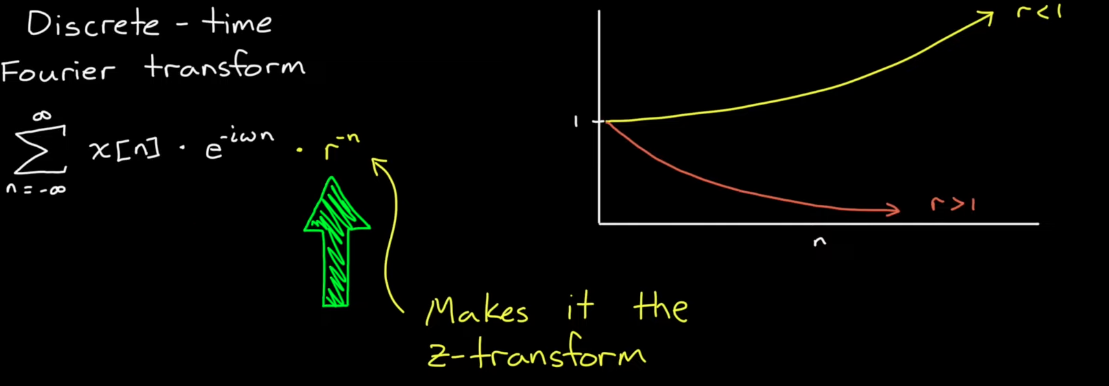 Discrete-time
Fourier transform
∞
∑ x[n] · e^{-iωn} · r^{-n}
n=-∞
Makes it the
z-transform
r<1
1
r>1
n